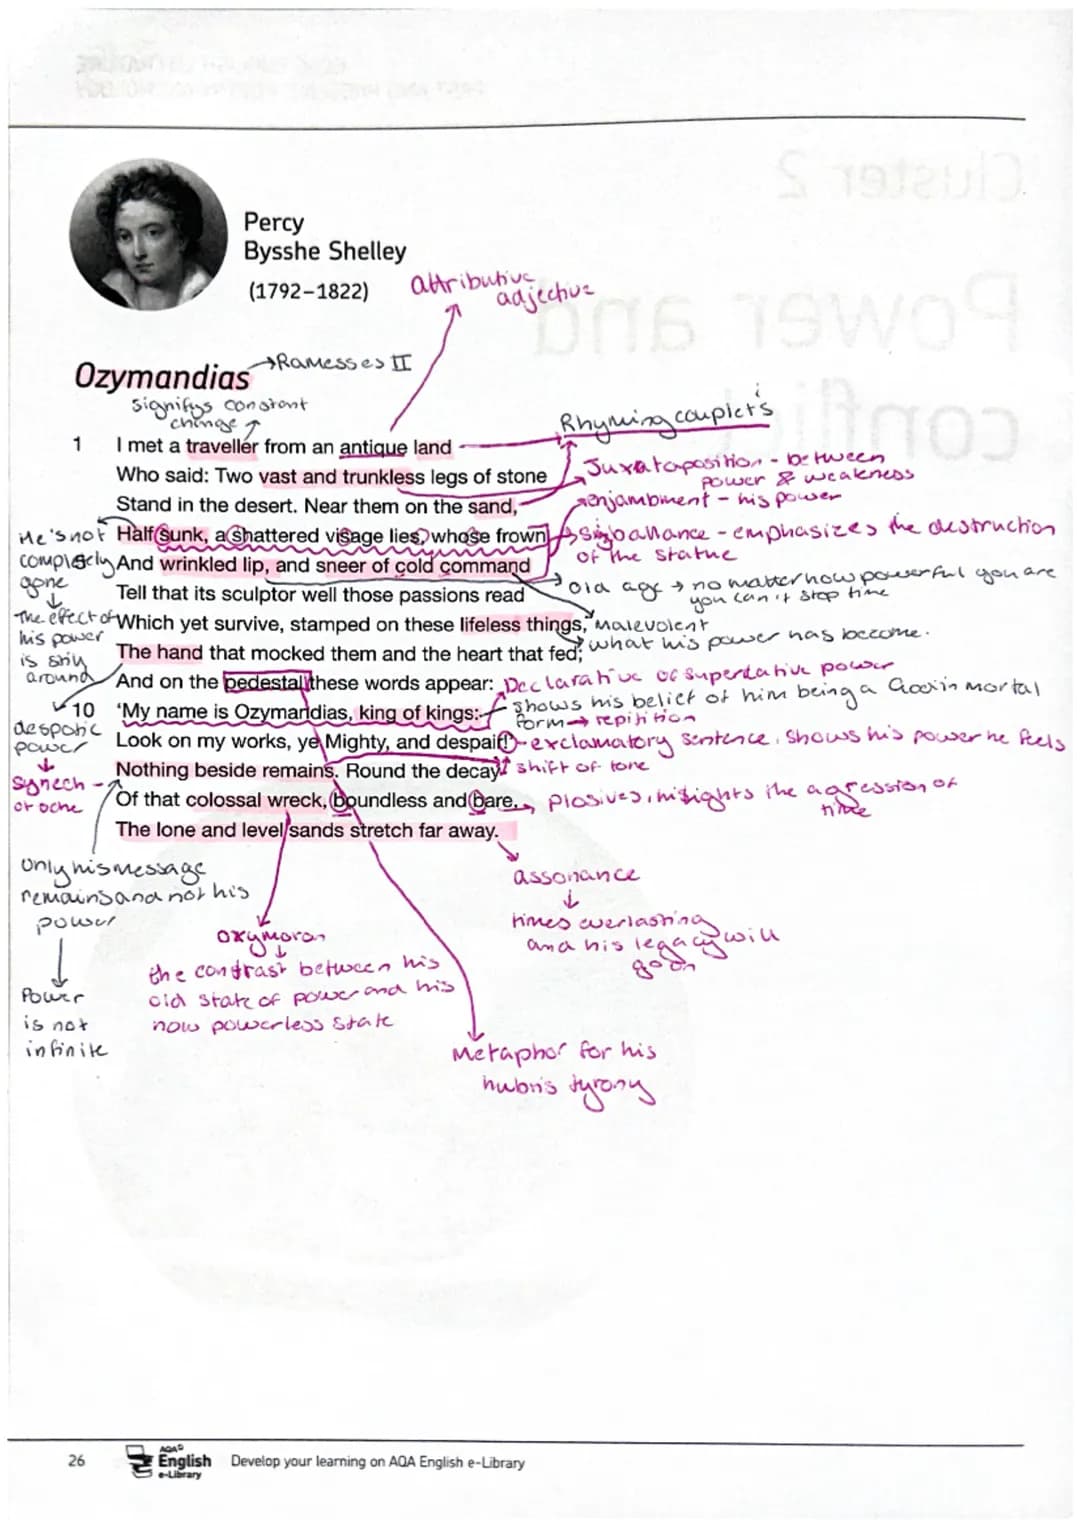 Percy
Bysshe Shelley
(1792–1822)
attributive
adjective
Ozymandias
→Ramesses II
signifys constant
change
Rhyming couplets
1 I met a traveller from an antique land
Who said: Two vast and trunkless legs of stone
Juxtaposition - between
power & weakness
Stand in the desert. Near them on the sand,
enjambment - his power
He's not
Half sunk, a shattered visage lies, whose frown
emphasizes the destruction
of the statue
completely
gone
And wrinkled lip, and sneer of cold command
old age → no matter how powerful you are
you can't stop time
Tell that its sculptor well those passions read
The effect of
his power
is still
around
Which yet survive, stamped on these lifeless things,
Malevolent
what his power has become.
The hand that mocked them and the heart that fed;
And on the pedestal these words appear:
Declarative of superlative power
shows his belief of him being a God in mortal
form → repitition
10 'My name is Ozymandias, king of kings:
despotic
power
Look on my works, ye Mighty, and despair!
- exclamatory sentence, shows his power he feels
Nothing beside remains. Round the decay
shift of tone
synech-
ot oche
Of that colossal wreck, boundless and bare,
plosives, the agression of
time
The lone and level sands stretch far away.
only his message
remains and not his
power
Power
is not
infinite
oxymoron
the contrast between his
old state of power and his
now powerless state
assonance
times everlasting
and his legacy will
go on
Metaphor for his
hubris tyrony
26
AQA
English
e-Library
Develop your learning on AQA English e-Library